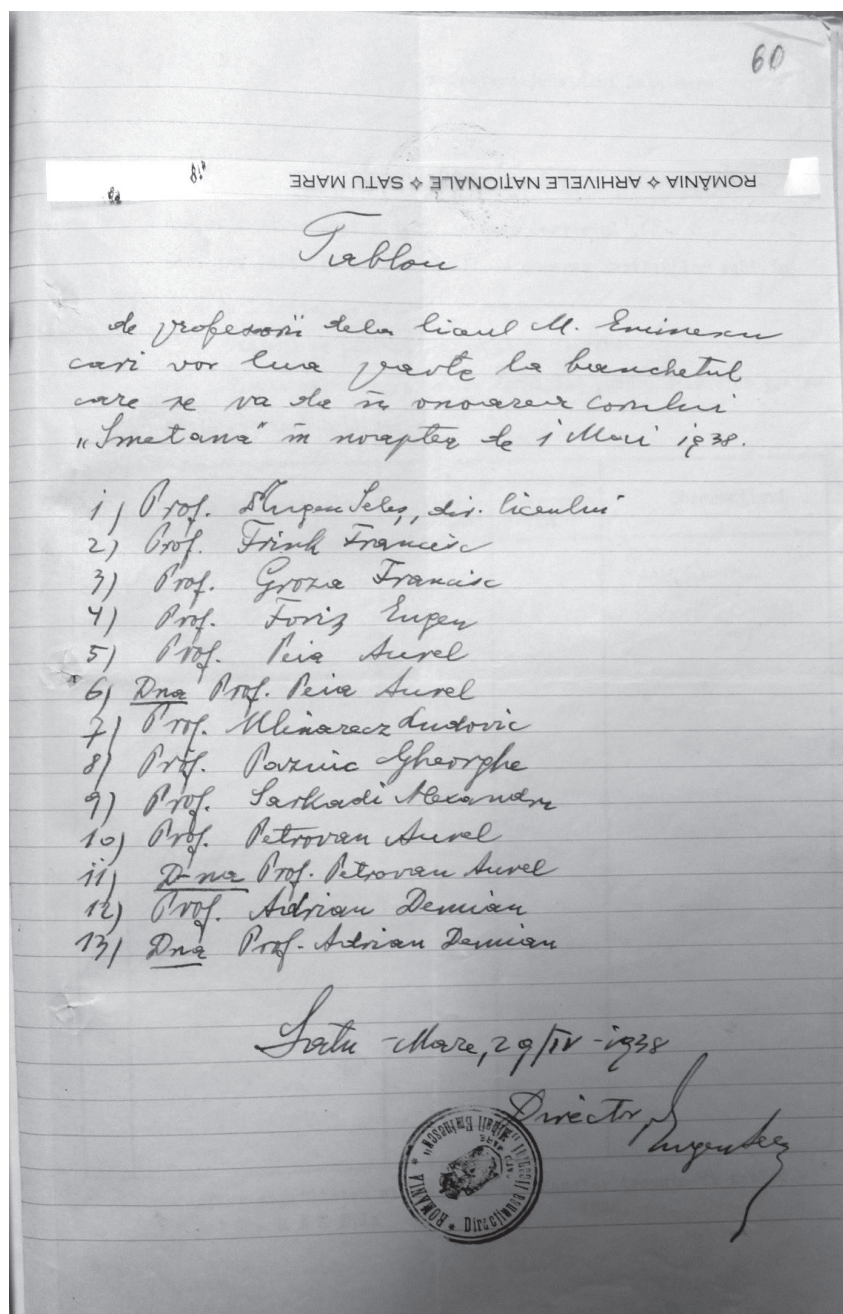 60
ROMÂNIA ✧ ARHIVELE NAȚIONALE ✧ SATU MARE
Tablou
de profesorii dela liceul M. Eminescu
cari vor lua parte la banchetul
care se va da în onoarea corului
„Smetana" în noaptea de 1 Mai 1938.
1) Prof. Eugen Seleș, dir. liceului
2) Prof. Frink Francisc
3) Prof. Groza Francisc
4) Prof. Foriș Eugen
5) Prof. Peia Aurel
6) Dna Prof. Peia Aurel
7) Prof. Mlinarecz Ludovic
8) Prof. Paznic Gheorghe
9) Prof. Sarkadi Alexandru
10) Prof. Petrovan Aurel
11) D-na Prof. Petrovan Aurel
12) Prof. Adrian Demian
13) Dna Prof. Adrian Demian
Satu-Mare, 29/IV-1938
Director,
Eugen Seleș
ROMÂNIA * Direcțiunea liceului „Mihail Eminescu" *